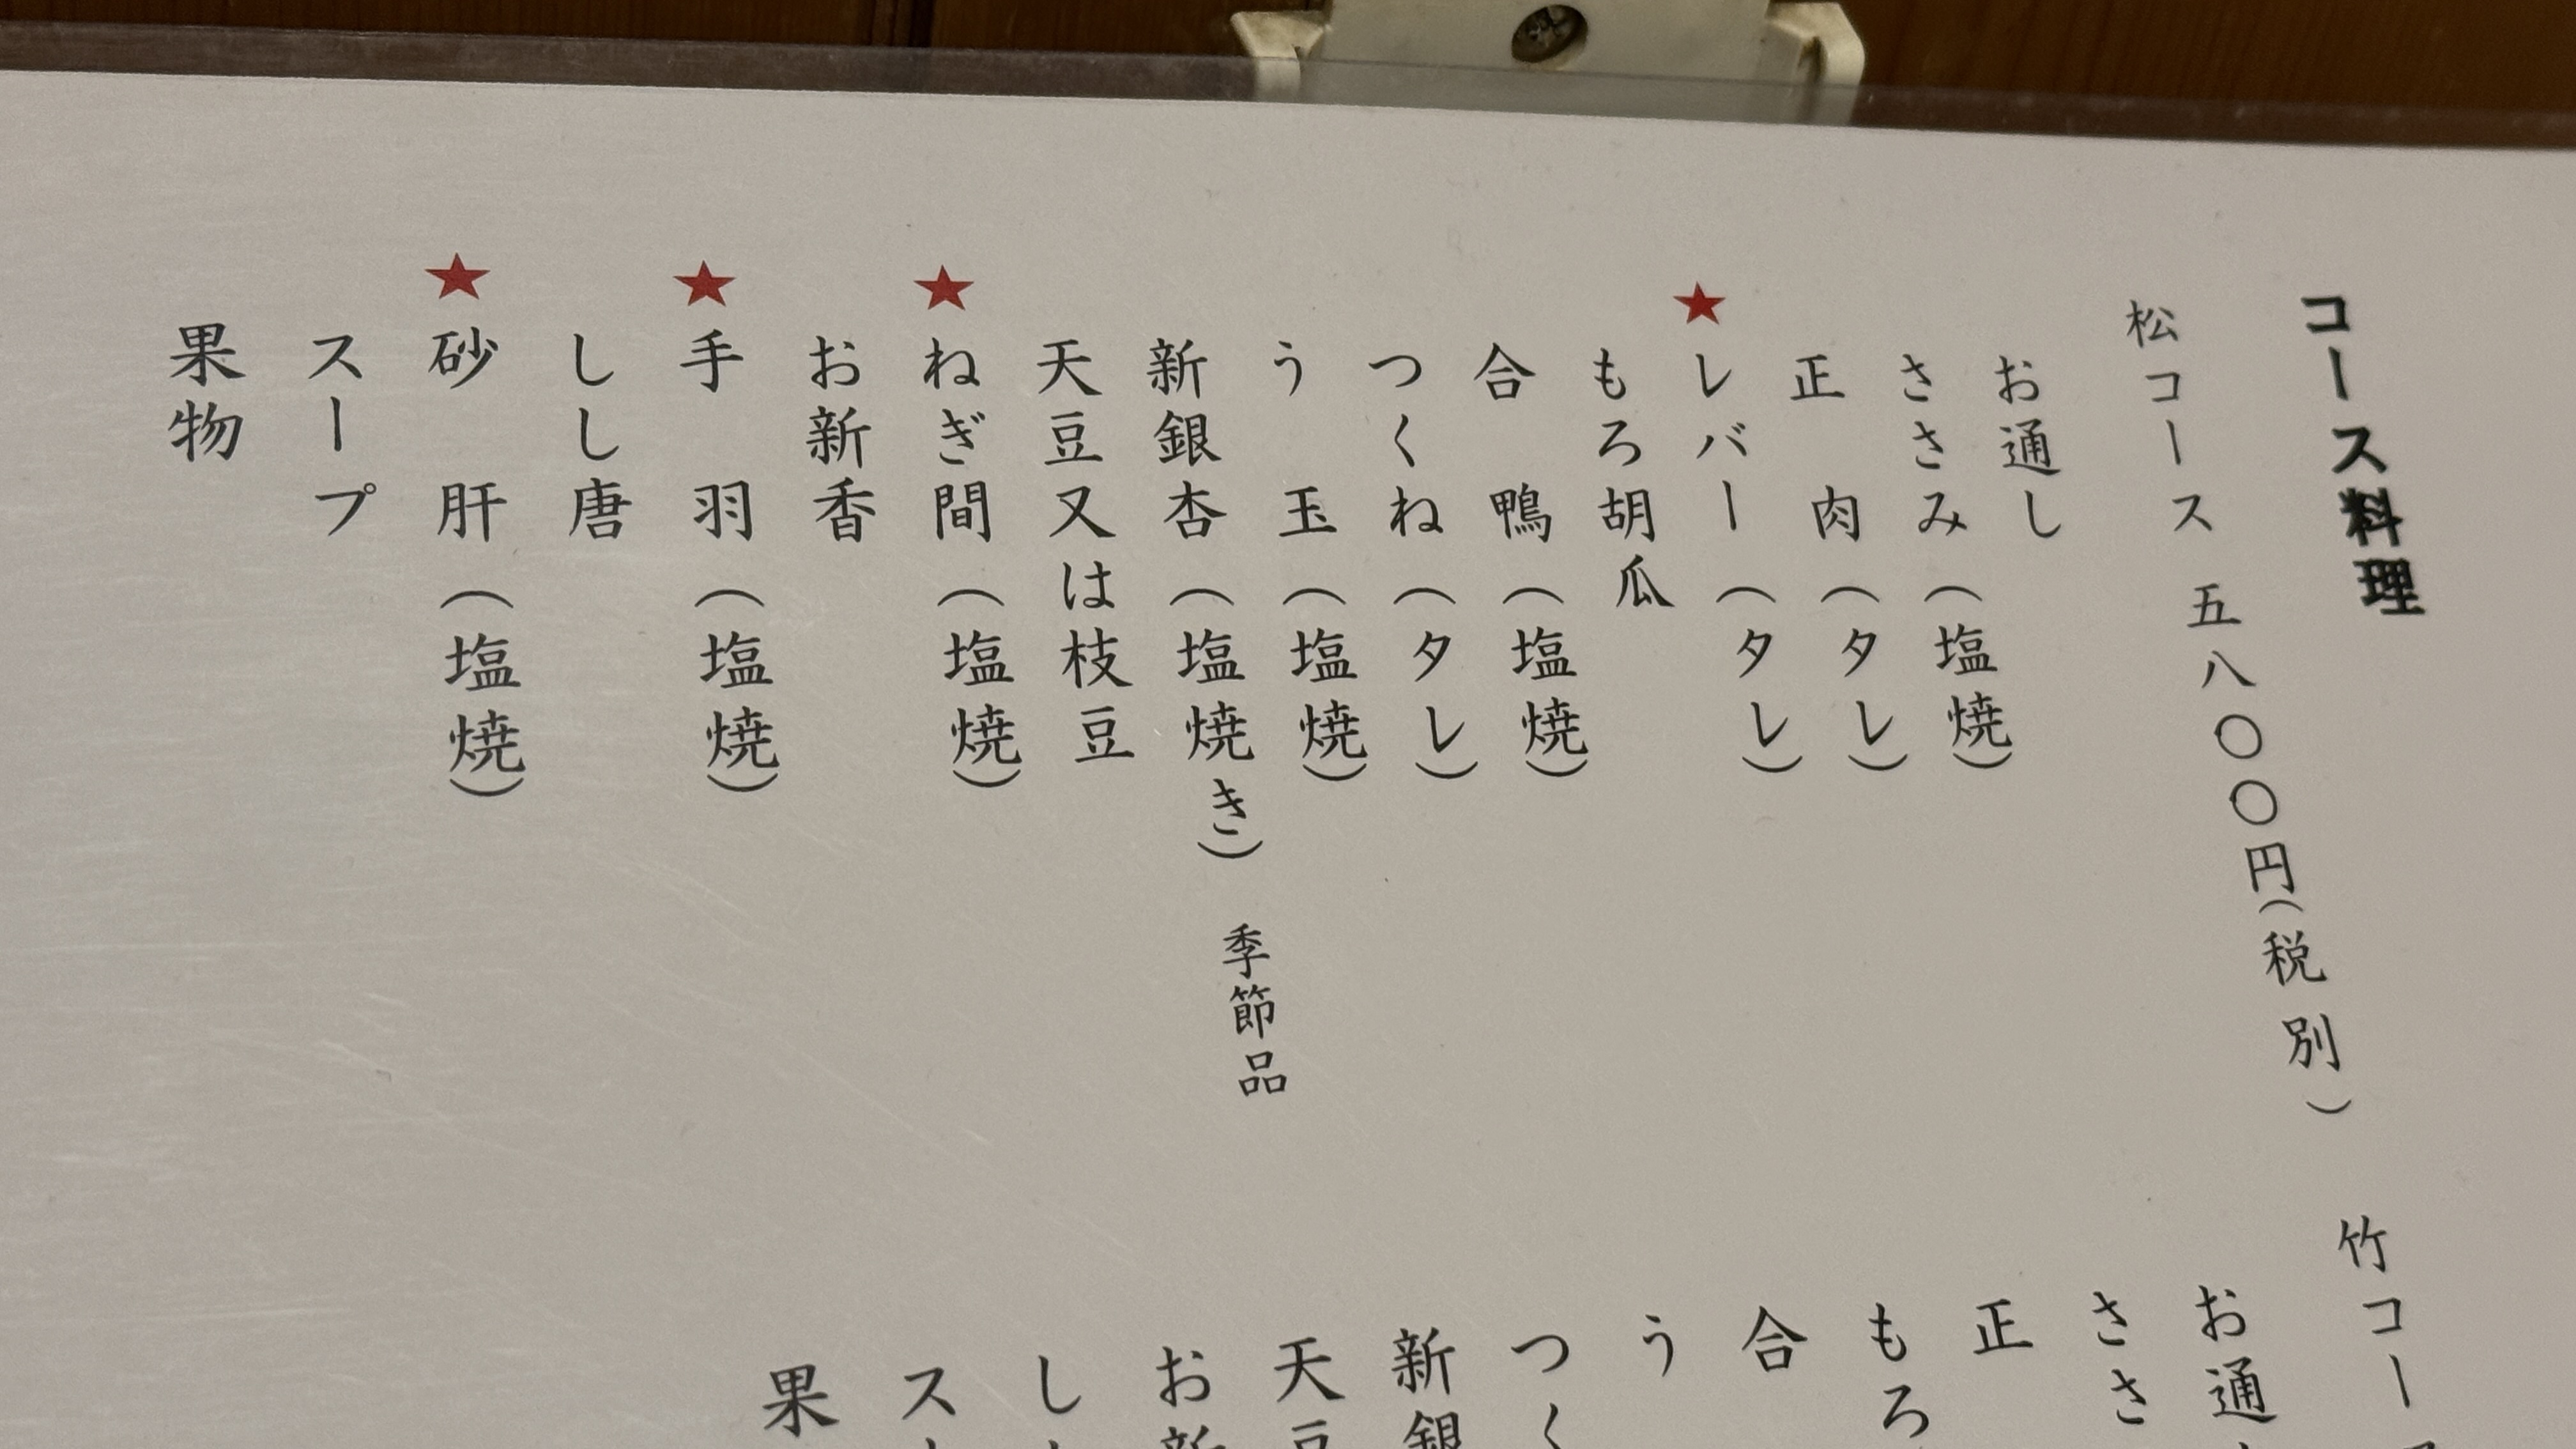 コース料理
松コース 五八〇〇円(税別)
お通し
ささみ(塩焼)
正肉(タレ)
★レバー(タレ)
もろ胡瓜
合鴨(塩焼)
つくね(タレ)
う玉(塩焼)
新銀杏(塩焼き) 季節品
天豆又は枝豆
★ねぎ間(塩焼)
お新香
★手羽(塩焼)
しし唐
★砂肝(塩焼)
スープ
果物
竹コー
お通
ささ
正
もろ
合
う
つく
新銀
天豆
お新
し
ス
果